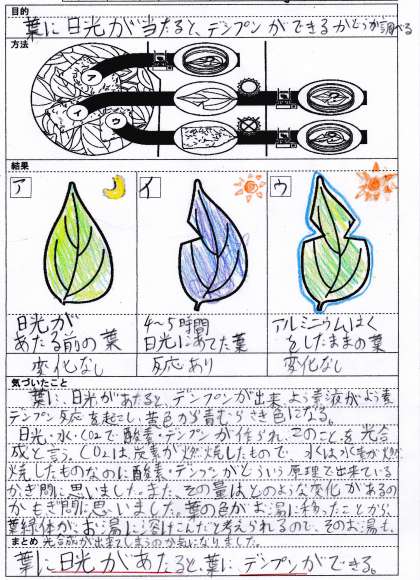 目的
葉に日光が当たると、デンプンができるかどうか調べる
方法
ア
イ
ウ
結果
ア
イ
ウ
日光が
あたる前の葉
4〜5時間
日光にあてた葉
アルミニウムはく
をしたままの葉
変化なし
反応あり
変化なし
気づいたこと
葉に、日光があたると、デンプンが出来、よう素液がよう素
デンプン反応を起こし、黄色から青むらさき色になる。
日光・水・CO2で酸素・デンプンが作られ、このことを光合
成と言う。CO2は炭素が燃焼したもので、水は水素が燃
焼したものなのに酸素・デンプンがどういう原理で出来ている
かぎ問に思いました。また、その量はどのような変化があるの
かもぎ問に思いました。葉の色がお湯に移ったことから、
葉緑体が、お湯に溶けこんだと考えられるので、そのお湯も、
光合成が出来てしまうのか気になりました。
まとめ
葉に日光があたると、葉に、デンプンができる。